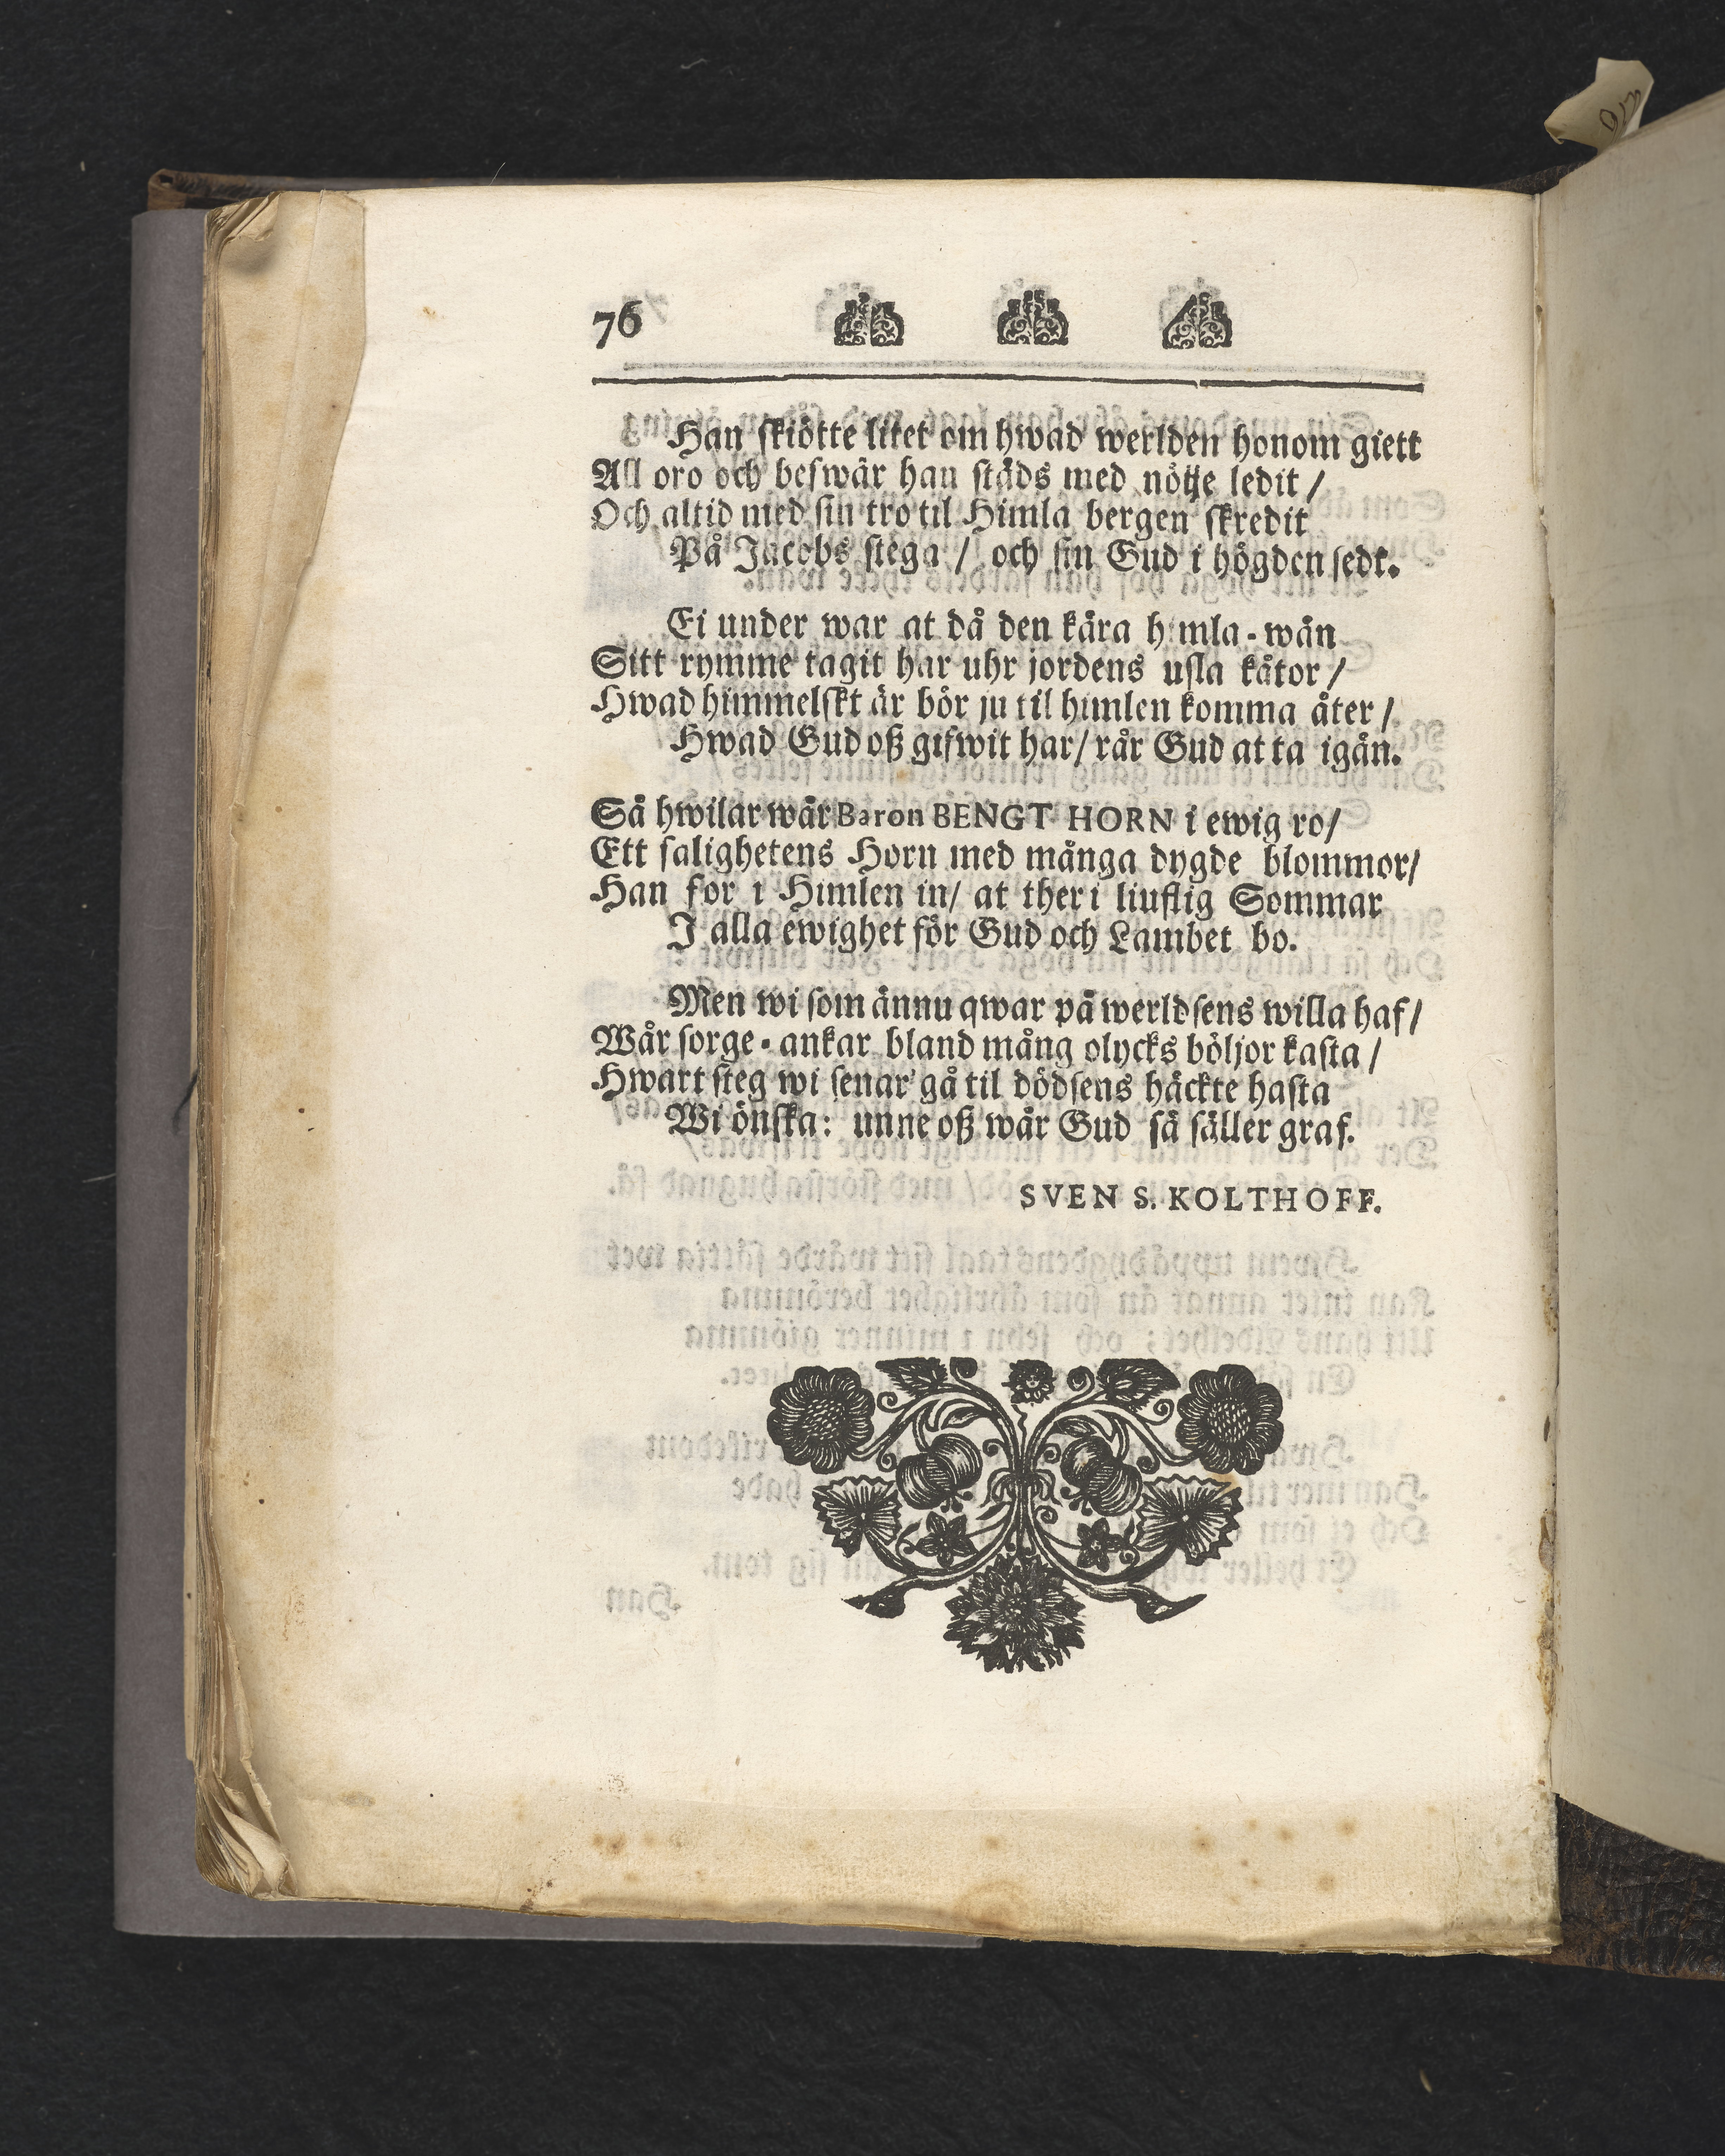 76
Han skiötte litet om hwad werlden honom giett
All oro och beswär han städs med nötje ledit /
Och altid med sin tro til Himla bergen skredit
På Jacobs stega / och sin Gud i högden sedt.
Ei under war at då den kära himla-wän
Sitt rymme tagit har uhr jordens usla kåtor /
Hwad himmelskt är bör ju til himlen komma åter /
Hwad Gud oß gifwit har / rår Gud at ta igän.
Så hwilar wår Baron BENGT HORN i ewig ro /
Ett salighetens Horn med många dygde blommor /
Han for i Himlen in / at ther i liuflig Sommar
I alla ewighet för Gud och Lambet bo.
Men wi som ännu qwar på werldsens willa haf /
Wår sorge-ankar bland mång olycks böljor kasta /
Hwart steg wi senar' gå til dödsens häckte hasta
Wi önska: unne oß wår Gud så säller graf.
SVEN S. KOLTHOFF.